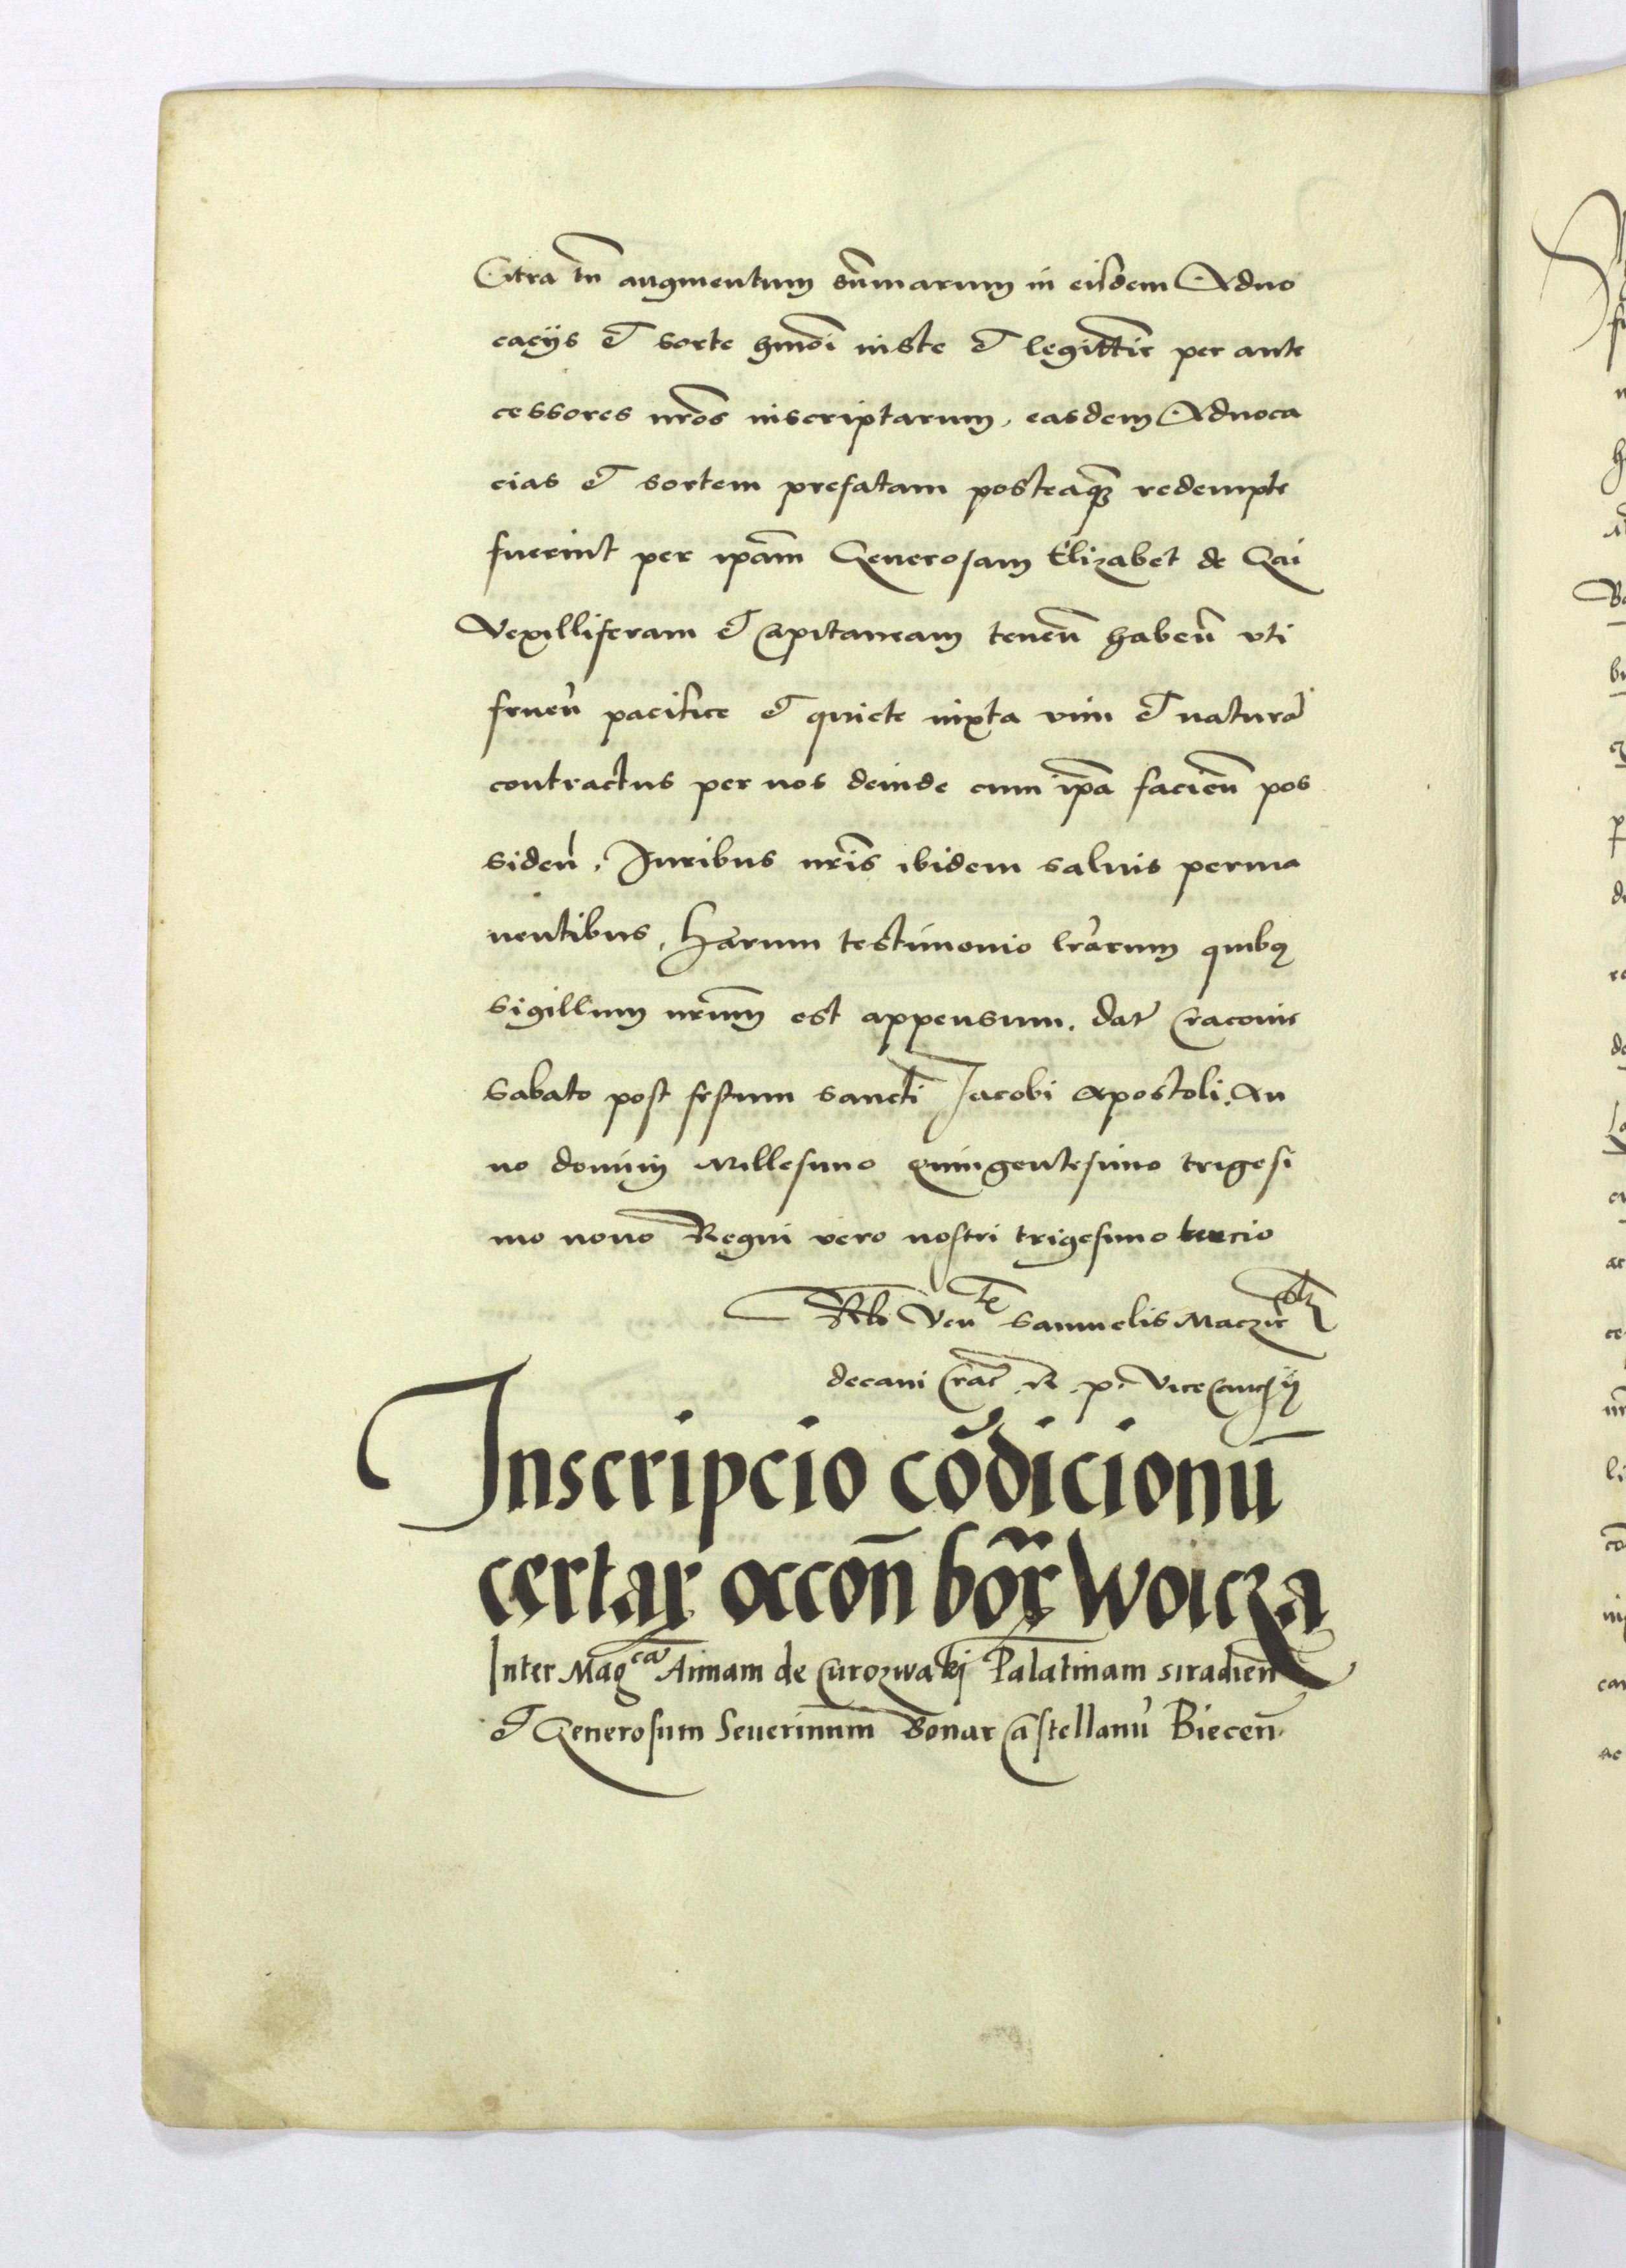 Citra tn̄ augmentum sūmarum in eisdem Aduo
caciis et sorte hmōi iuste et legittīe per ante
cessores nr̄os inscriptarum, easdem Aduoca
cias et sortem prefatam posteaqʒ redempte
fuerint per ip̄am Generosam Elizabet de Gai
Vexilliferam et Capitaneam tenen̄ haben̄ vti
fruen̄ pacifice et quiete iuxta vim et naturā
contractus per nos deinde cum ip̄a facien̄ pos
siden̄. Iuribus nr̄is ibidem saluis perma
nentibus, Harum testimonio lr̄arum quibꝰ
sigillum nr̄um est appensum. dat̄ Cracouie
Sabato post festum sancti Jacobi Apostoli. An
no domini Millesimo quingentesimo trigesi
mo nono Regni vero nostri trigesimo tercio
Rlō Ven Samuelis Macziē
decani Crac̄ R. p. Vicecancȷ̄ii
Inscripcio cōdicionū
certar accōn bōr Woicza
Inter Magᶜᵃ Annam de Curozwaki Palatinam siradien̄
et Generosum Seuerinum Bonar Castellanū Biecen̄